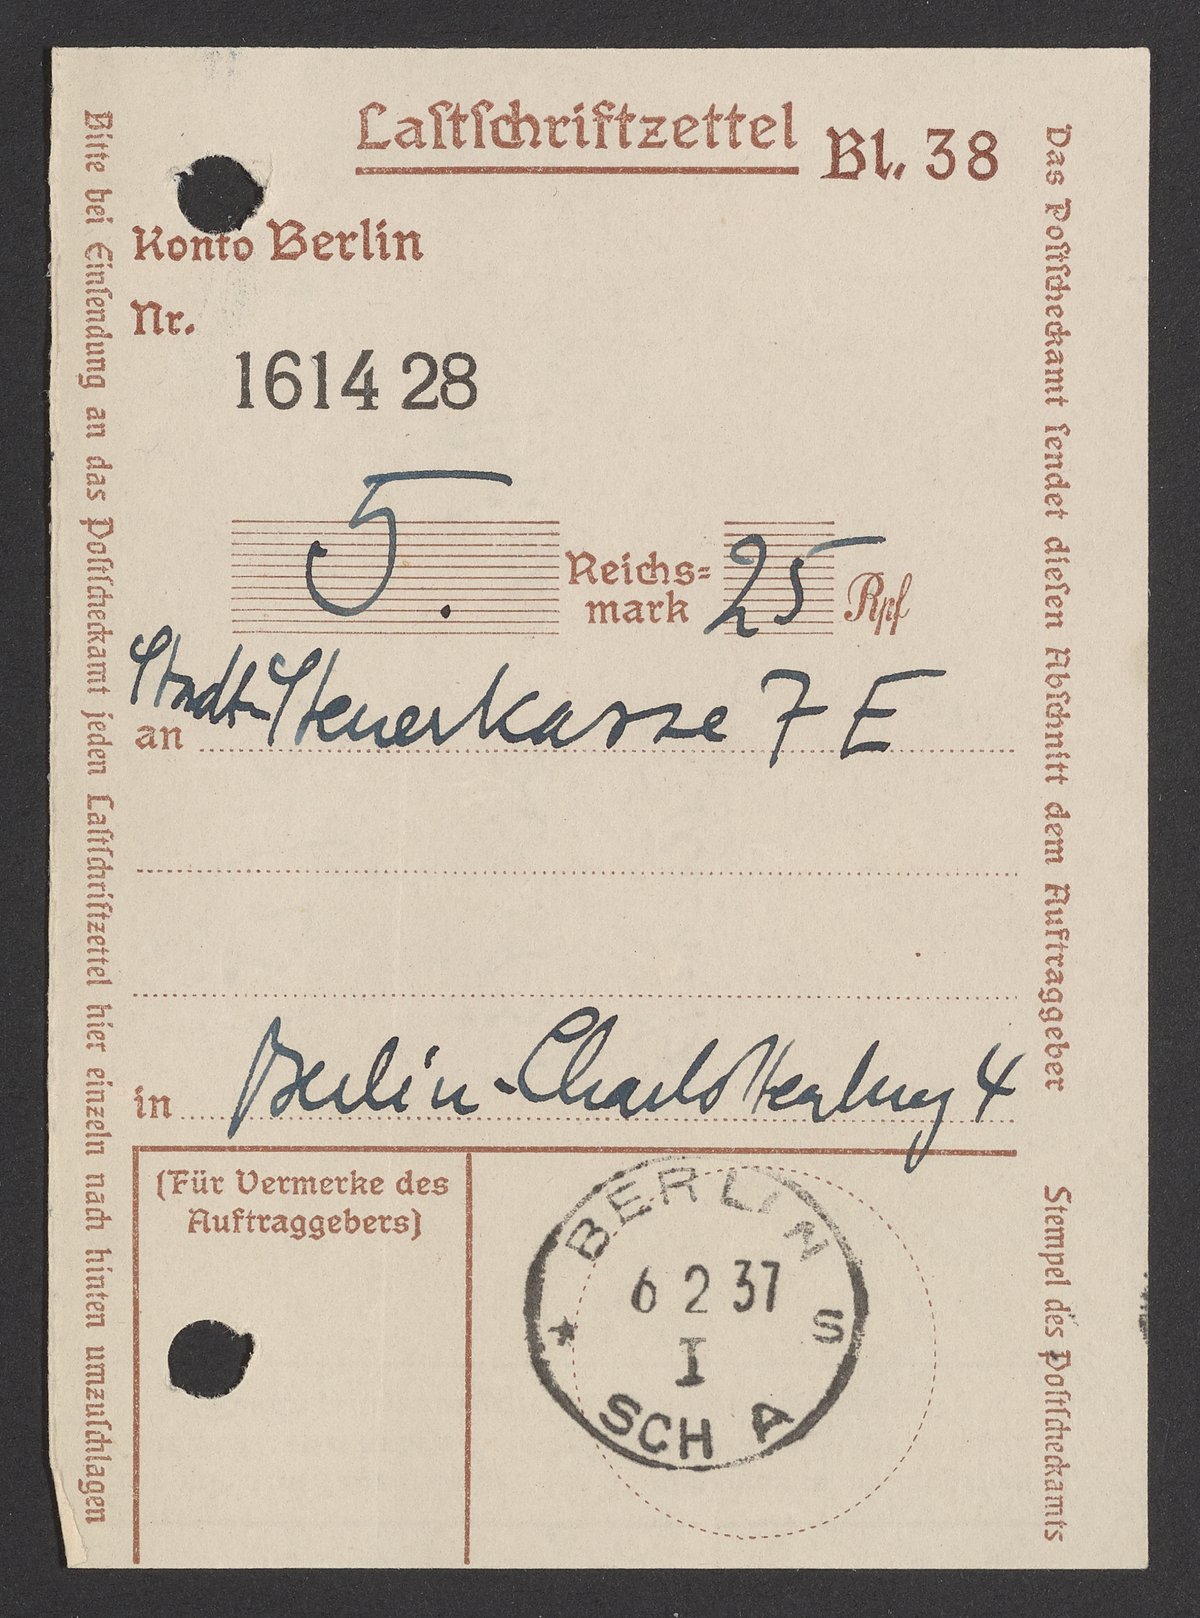 Lastschriftzettel
Bl. 38
Konto Berlin
Nr.
1614 28
5.
Reichs=
mark
25
Rpf
an Stadt-Steuerkasse 7 E
in Berlin-Charlottenburg 4
(Für Vermerke des
Auftraggebers)
BERLIN S
6 2 37
I
SCH A
Bitte bei Einsendung an das Postscheckamt jeden Lastschriftzettel hier einzeln nach hinten umzuschlagen
Das Postscheckamt sendet diesen Abschnitt dem Auftraggeber
Stempel des Postscheckamts